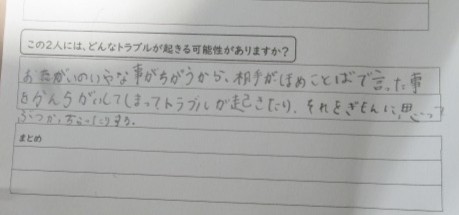 この2人には、どんなトラブルが起きる可能性がありますか?
おたがいのいやな事がちがうから、相手がほめことばで言った事
もかんちがいしてしまってトラブルが起きたり、それをぎもんに思って
ぶつか
まとめ